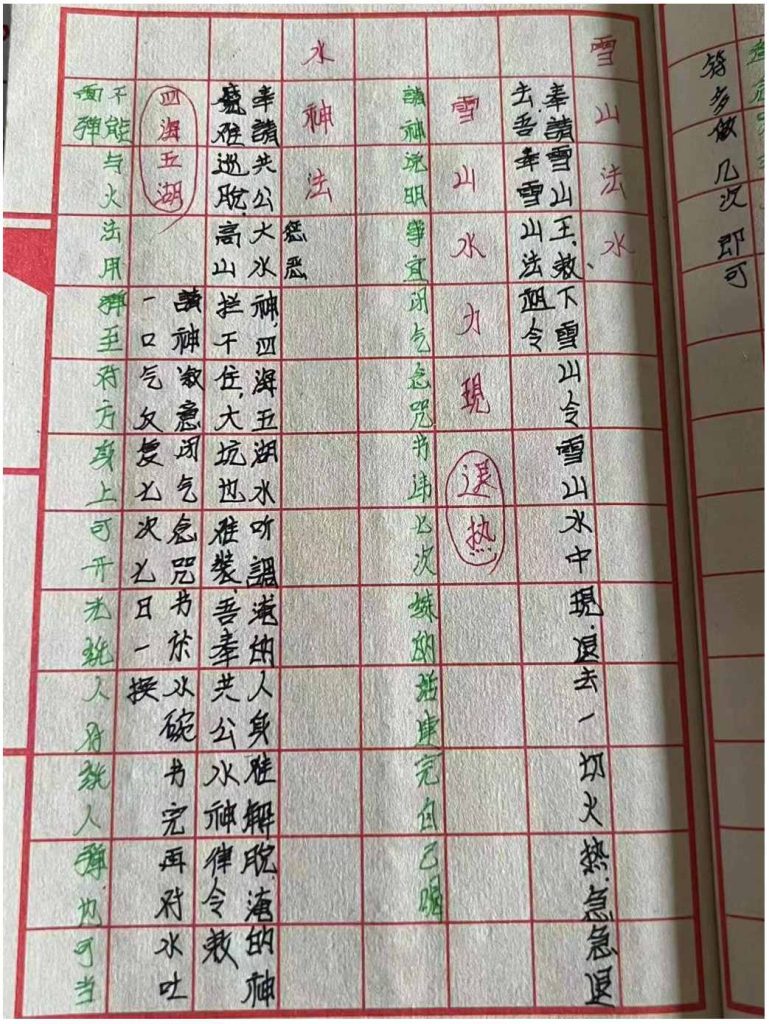 符多做几次即可
雪山法水
奉請雪山王,敕下雪山令雪山水中現,退去一切火热,急急退
去,吾奉雪山法祖令
雪山水力現 退热
請神说明事宜闭气念咒书讳七次
完自己喝
水神法
惩恶
奉請共公大水神,四海五湖水听調,淹的人身难解脱,淹的神
难逃脱,高山拦不住,大坑也难装,吾奉共公水神律令敕
請神敬意闭气念咒书於水碗书完再对水吐
一口气反复七次七日一换
四海五湖
不能与火法用弹至对方身上可开光就人对就人弹也可当
面弹